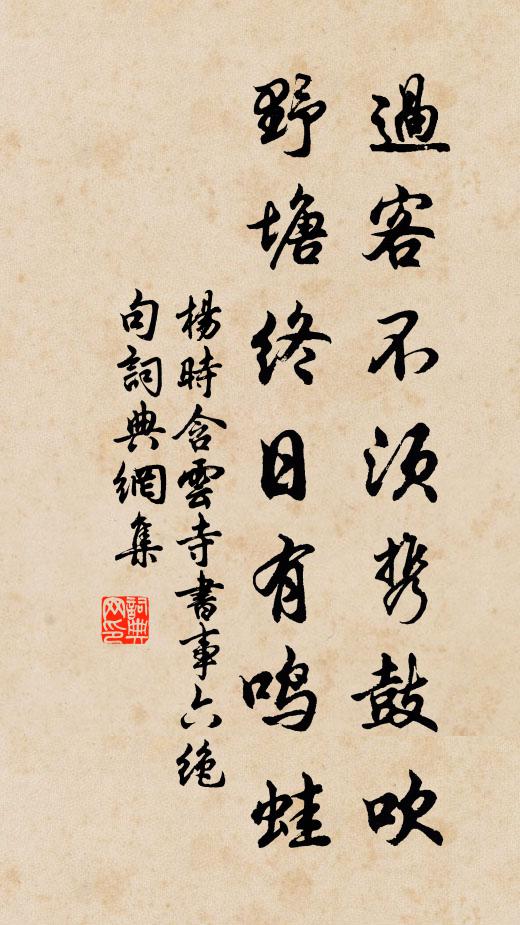 過客不須携鼓吹
野塘終日有鳴蛙
楊時含雲寺書事六絶
句詞典網集
詞典网印